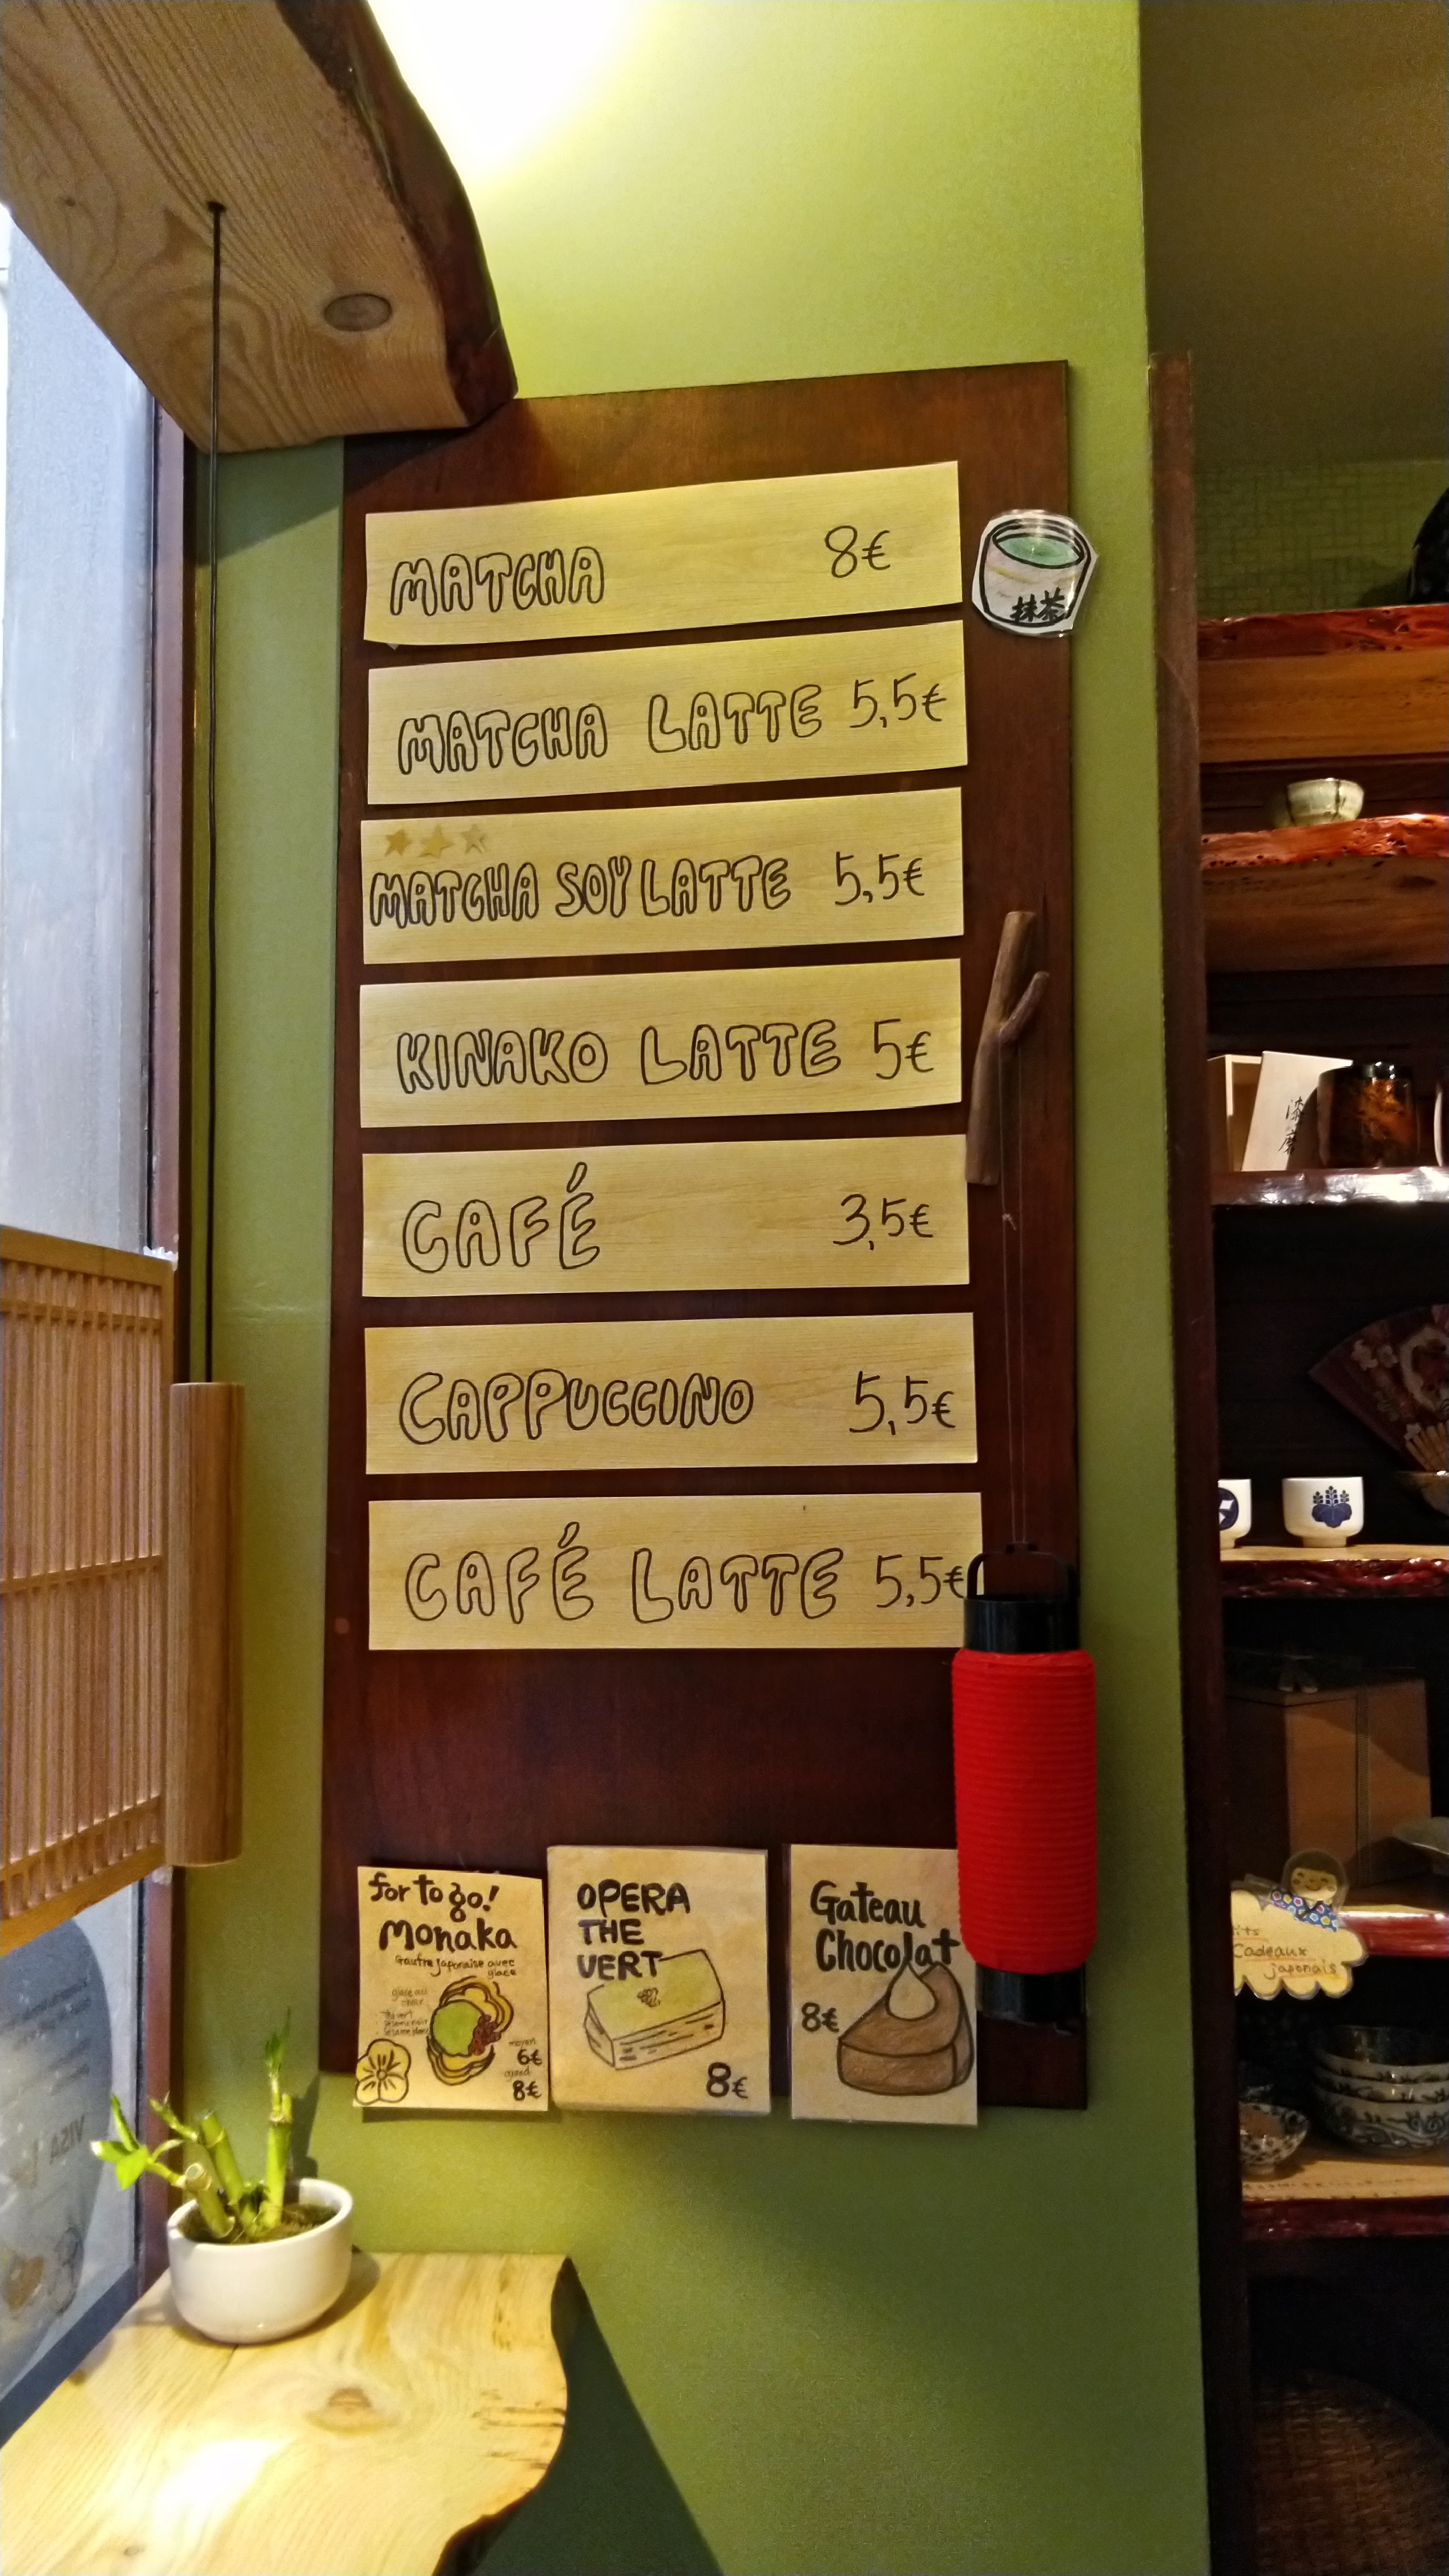 MATCHA 8€
抹茶
MATCHA LATTE 5,5€
MATCHA SOY LATTE 5,5€
KINAKO LATTE 5€
CAFÉ 3,5€
CAPPUCCINO 5,5€
CAFÉ LATTE 5,5€
for to go!
Monaka
Gaufre Japonaise avec
glace
glace au
choix
thé vert
sésame noir
moyen
6€
grand
8€
OPERA
THE
VERT
8€
Gateau
Chocolat
8€
Cadeaux
japonais
VISA